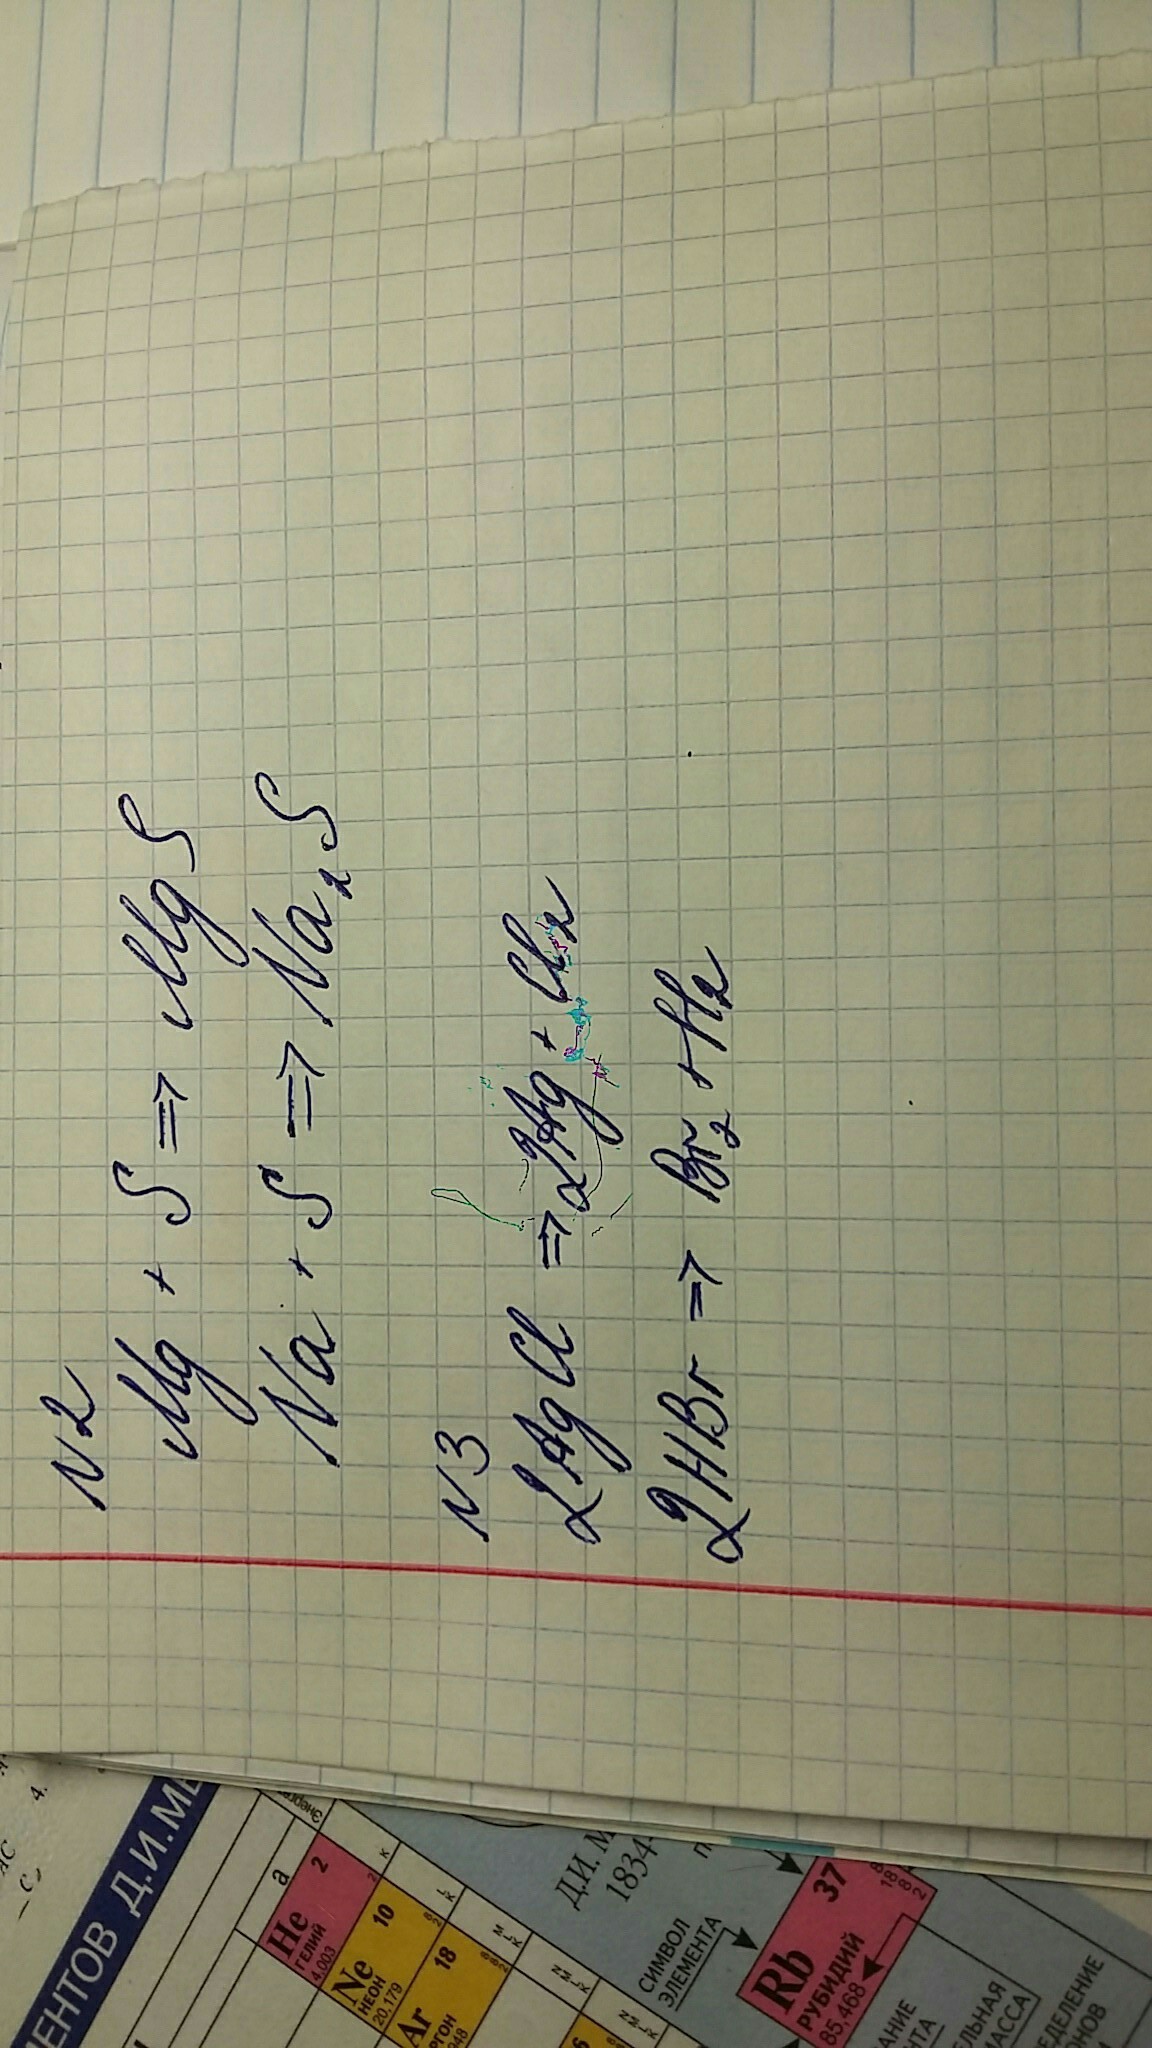 N2
Mg + S ⇒ MgS
Na + S ⇒ Na₂S
N3
2AgCl ⇒ 2Ag + Cl₂
2HBr ⇒ Br₂ + H₂
ЕНТОВ Д.И.МЕ
a
He 2
ГЕЛИЙ
4,003
Ne 10
НЕОН
20,179
Ar 18
РГОН
948
Д.И. М
1834-
СИМВОЛ
ЭЛЕМЕНТА
Rb 37
РУБИДИЙ
85,468
18
8
2
АНИЕ
НТА
ЕЛЬНАЯ
МАССА
ЕДЕЛЕНИЕ
ОНОВ